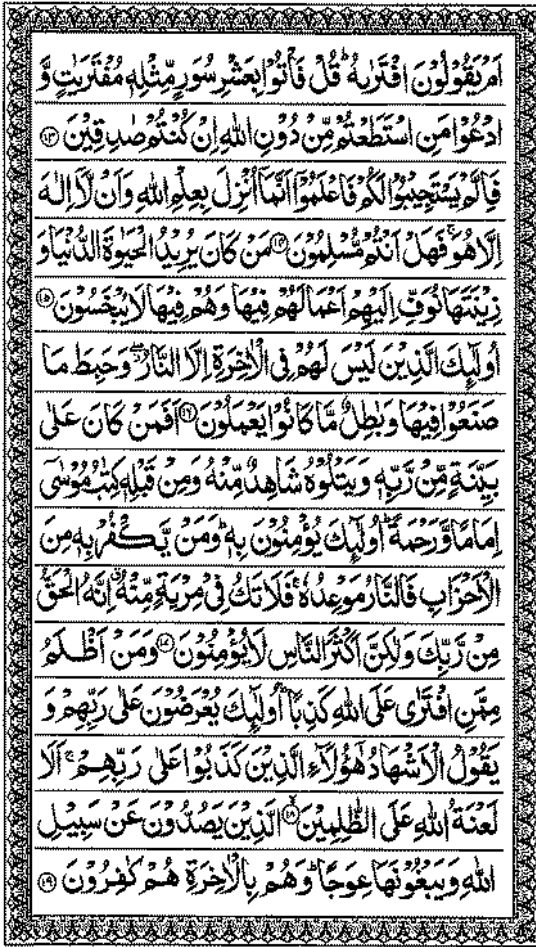 اَمْ يَقُوْلُوْنَ افْتَرٰىهُ ؕ قُلْ فَاْتُوْا بِعَشْرِ سُوَرٍ مِّثْلِهٖ مُفْتَرَيٰتٍ وَّ
ادْعُوْا مَنِ اسْتَطَعْتُمْ مِّنْ دُوْنِ اللّٰهِ اِنْ كُنْتُمْ صٰدِقِيْنَ ۝۱۳
فَاِلَّمْ يَسْتَجِيْبُوْا لَكُمْ فَاعْلَمُوْۤا اَنَّمَاۤ اُنْزِلَ بِعِلْمِ اللّٰهِ وَاَنْ لَّاۤ اِلٰهَ
اِلَّا هُوَ ۚ فَهَلْ اَنْتُمْ مُّسْلِمُوْنَ ۝۱۴ مَنْ كَانَ يُرِيْدُ الْحَيٰوةَ الدُّنْيَا وَ
زِيْنَتَهَا نُوَفِّ اِلَيْهِمْ اَعْمَالَهُمْ فِيْهَا وَهُمْ فِيْهَا لَا يُبْخَسُوْنَ ۝۱۵
اُولٰٓئِكَ الَّذِيْنَ لَيْسَ لَهُمْ فِي الْاٰخِرَةِ اِلَّا النَّارُ ۖ وَحَبِطَ مَا
صَنَعُوْا فِيْهَا وَبٰطِلٌ مَّا كَانُوْا يَعْمَلُوْنَ ۝۱۶ اَفَمَنْ كَانَ عَلٰى
بَيِّنَةٍ مِّنْ رَّبِّهٖ وَيَتْلُوْهُ شَاهِدٌ مِّنْهُ وَمِنْ قَبْلِهٖ كِتٰبُ مُوْسٰۤى
اِمَامًا وَّرَحْمَةً ؕ اُولٰٓئِكَ يُؤْمِنُوْنَ بِهٖ ؕ وَمَنْ يَّكْفُرْ بِهٖ مِنَ
الْاَحْزَابِ فَالنَّارُ مَوْعِدُهٗ ۚ فَلَا تَكُ فِيْ مِرْيَةٍ مِّنْهُ ۗ اِنَّهُ الْحَقُّ
مِنْ رَّبِّكَ وَلٰكِنَّ اَكْثَرَ النَّاسِ لَا يُؤْمِنُوْنَ ۝۱۷ وَمَنْ اَظْلَمُ
مِمَّنِ افْتَرٰى عَلَى اللّٰهِ كَذِبًا ؕ اُولٰٓئِكَ يُعْرَضُوْنَ عَلٰى رَبِّهِمْ وَ
يَقُوْلُ الْاَشْهَادُ هٰٓؤُلَآءِ الَّذِيْنَ كَذَبُوْا عَلٰى رَبِّهِمْ ۚ اَلَا
لَعْنَةُ اللّٰهِ عَلَى الظّٰلِمِيْنَ ۝۱۸ الَّذِيْنَ يَصُدُّوْنَ عَنْ سَبِيْلِ
اللّٰهِ وَيَبْغُوْنَهَا عِوَجًا ؕ وَهُمْ بِالْاٰخِرَةِ هُمْ كٰفِرُوْنَ ۝۱۹